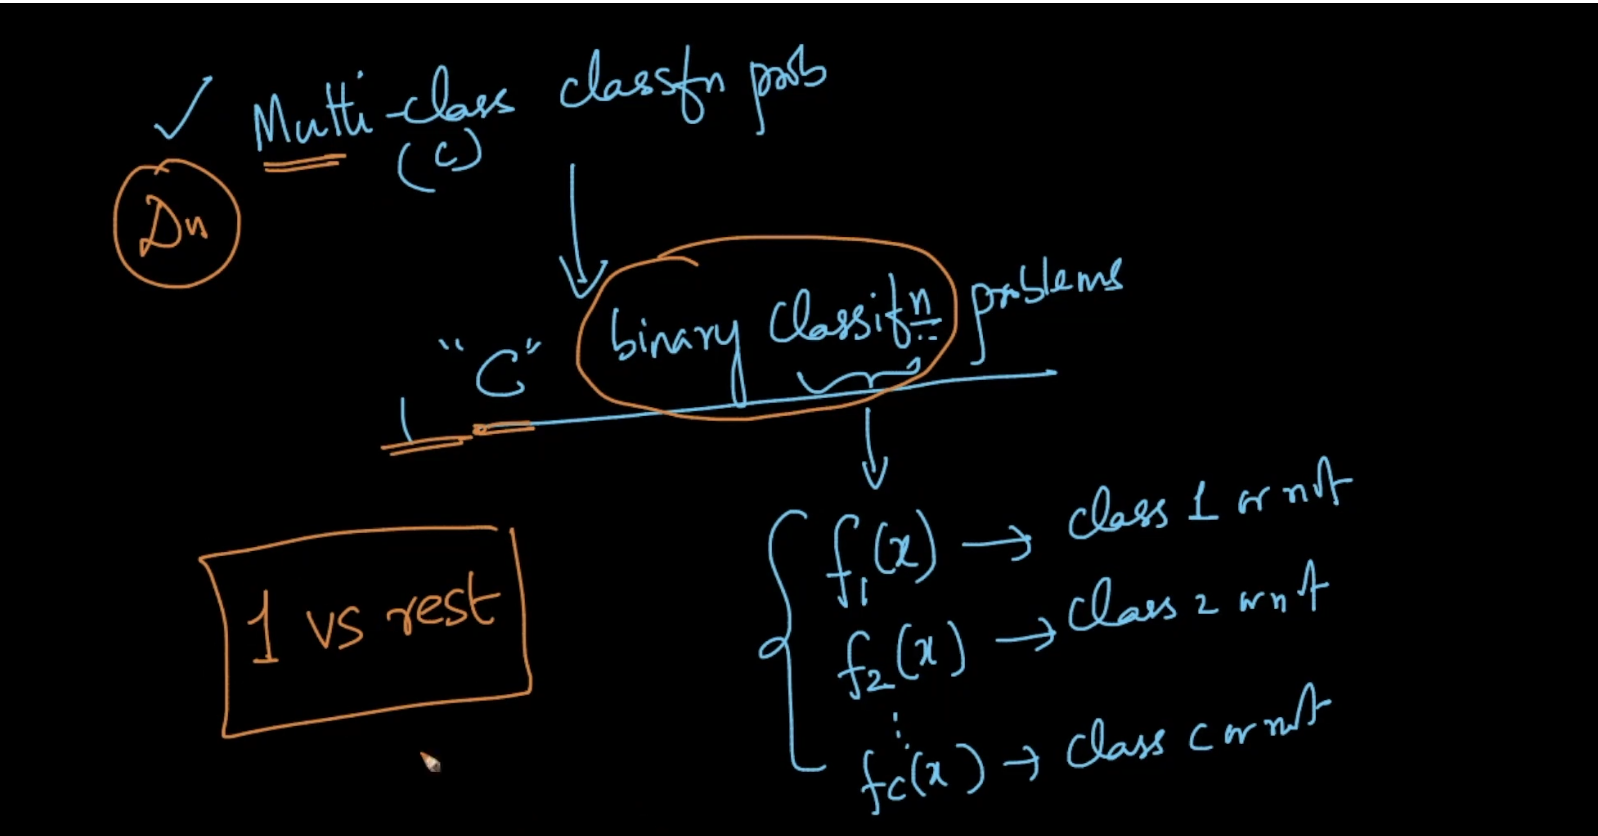 ✓ Multi-class classfn prob
(c)
Dn
"C" binary classifn problems
1 vs rest
f₁(x) → class 1 or not
f₂(x) → class 2 or not
⋮
fc(x) → class c or not